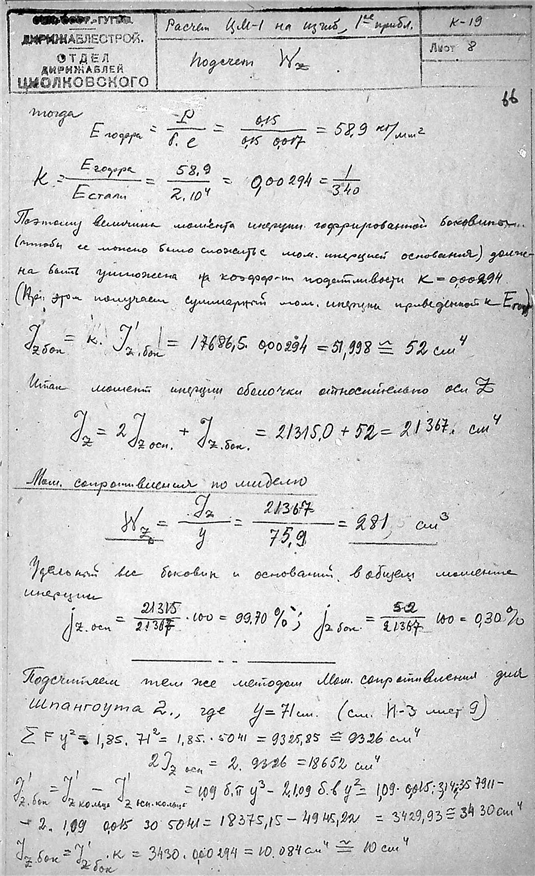 ДИРИЖАБЛЕСТРОЙ.
ОТДЕЛ
ДИРИЖАБЛЕЙ
ЦИОЛКОВСКОГО
Расчет ЦМ-1 на изгиб, 1ое прибл.
К-19
Подсчет Wz
Лист 8
66
тогда
E гофра = P / б.е = 0,15 / 0,15 0,017 = 58,9 кг/мм2
К = E гофра / E стали = 58,9 / 2.10⁴ = 0,00294 = 1/340
Поэтому величина момента инерции гофрированной боковины
(чтобы ее можно было сложить с мом. инерцией основания) долж-
на быть умножена на коэффи-нт податливости К=0,00294
(При этом получаем суммарный мом. инерции приведенный к
Jz бок = к. J'z.бок = 17686,5. 0,00294 = 51,998 ≅ 52 см⁴
Итак момент инерции оболочки относительно оси Z
Jz = 2Jz осн. + Jz.бок. = 21315,0 + 52 = 21367. см⁴
Мом. сопротивления по миделю
Wz = Jz / y = 21367 / 75,9 = 281,5 см³
Удельный вес боковин и оснований в общем моменте
инерции
jz.осн = 21315/21367 . 100 = 99,70 %; jz бок. = 52/21367 100 = 0,30 %
Подсчитаем тем же методом Мом. сопротивления для
Шпангоута 2., где y = 71 см. (см. К-3 лист 9)
Σ F y² = 1,85. 71² = 1,85. 5041 = 9325,85 ≅ 9326 см⁴
2Jz осн = 2. 9326 = 18652 см⁴
J'z.бок = J'z кольца − J'z осн.кольца = 1,09 б.π y³ − 2.1,09 б.в y² = 1,09. 0,015. 3,14. 357911 −
− 2. 1,09 0,015 30 5041 = 18375,15 − 4945,22 = 3429,93 ≅ 3430 см⁴
Jz.бок = J'z бок . К = 3430. 0,00294 = 10.084 см⁴ ≅ 10 см⁴